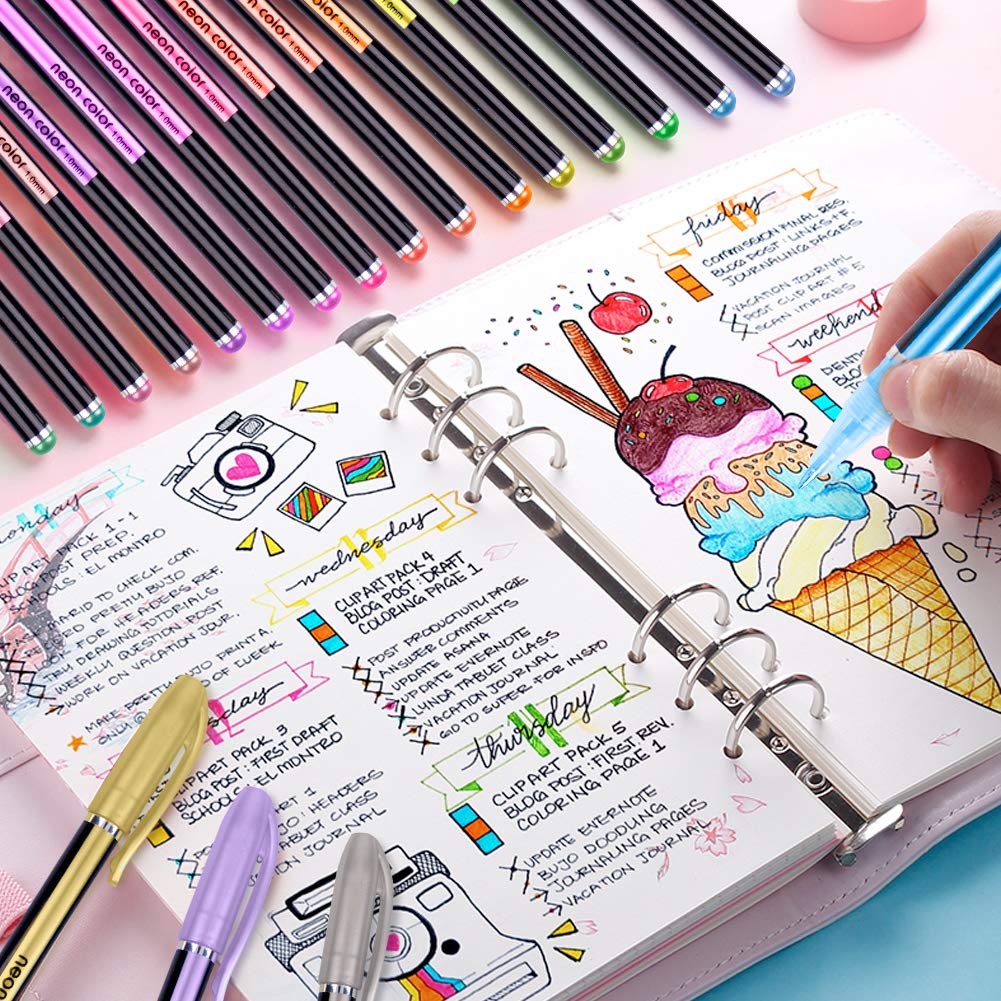 neon color 1.0mm
neon color 1.0mm
neon color 1.0mm
neon color 1.0mm
neon color 1.0mm
color 1.0mm
monday
CLIPART PACK 1-1
BLOG POST PREP.
SCHOOLS: EL MDNTRO
MARID TO CHECK COM.
PRETTY BUJO
FOR HEADERS. REF.
NEW DRAWING TUTORIALS
WEEKLY QUESTION POST
WORK ON VACATION JOUR.
MAKE PRINTA.
OF WEEK
sday
CLIPART PACK 3
BLOG POST: FIRST DRAFT
SCHOOLS: EL MDNTRO
PART 1
BUJO: HEADERS
TABLET CLASS
JOURNAL
wednesday
CLIPART PACK 4
BLOG POST: DRAFT
COLORING PAGE 1
POST PRODUCTIVITY PAGE
ANSWER COMMENTS
UPDATE ASANA
UPDATE EVERNOTE
LYNDA TABLET CLASS
VACATION JOURNAL-
GID TO SUPER FOR INSPO
thursday
CLIPART PACK 5
BLOG POST: FIRST REV.
COLORING PAGE 1
UPDATE EVERNOTE
BUJO DOODLING
JOURNALING PAGES
VACATION JOURNAL
friday
COMMISSION FINAL RES.
BLOG POST: LINKS+F.
JOURNALING PAGES
VACATION JOURNAL
POST CLIPART #5
SCAN IMAGES
weekend
DENTI
BLO
TO
neon